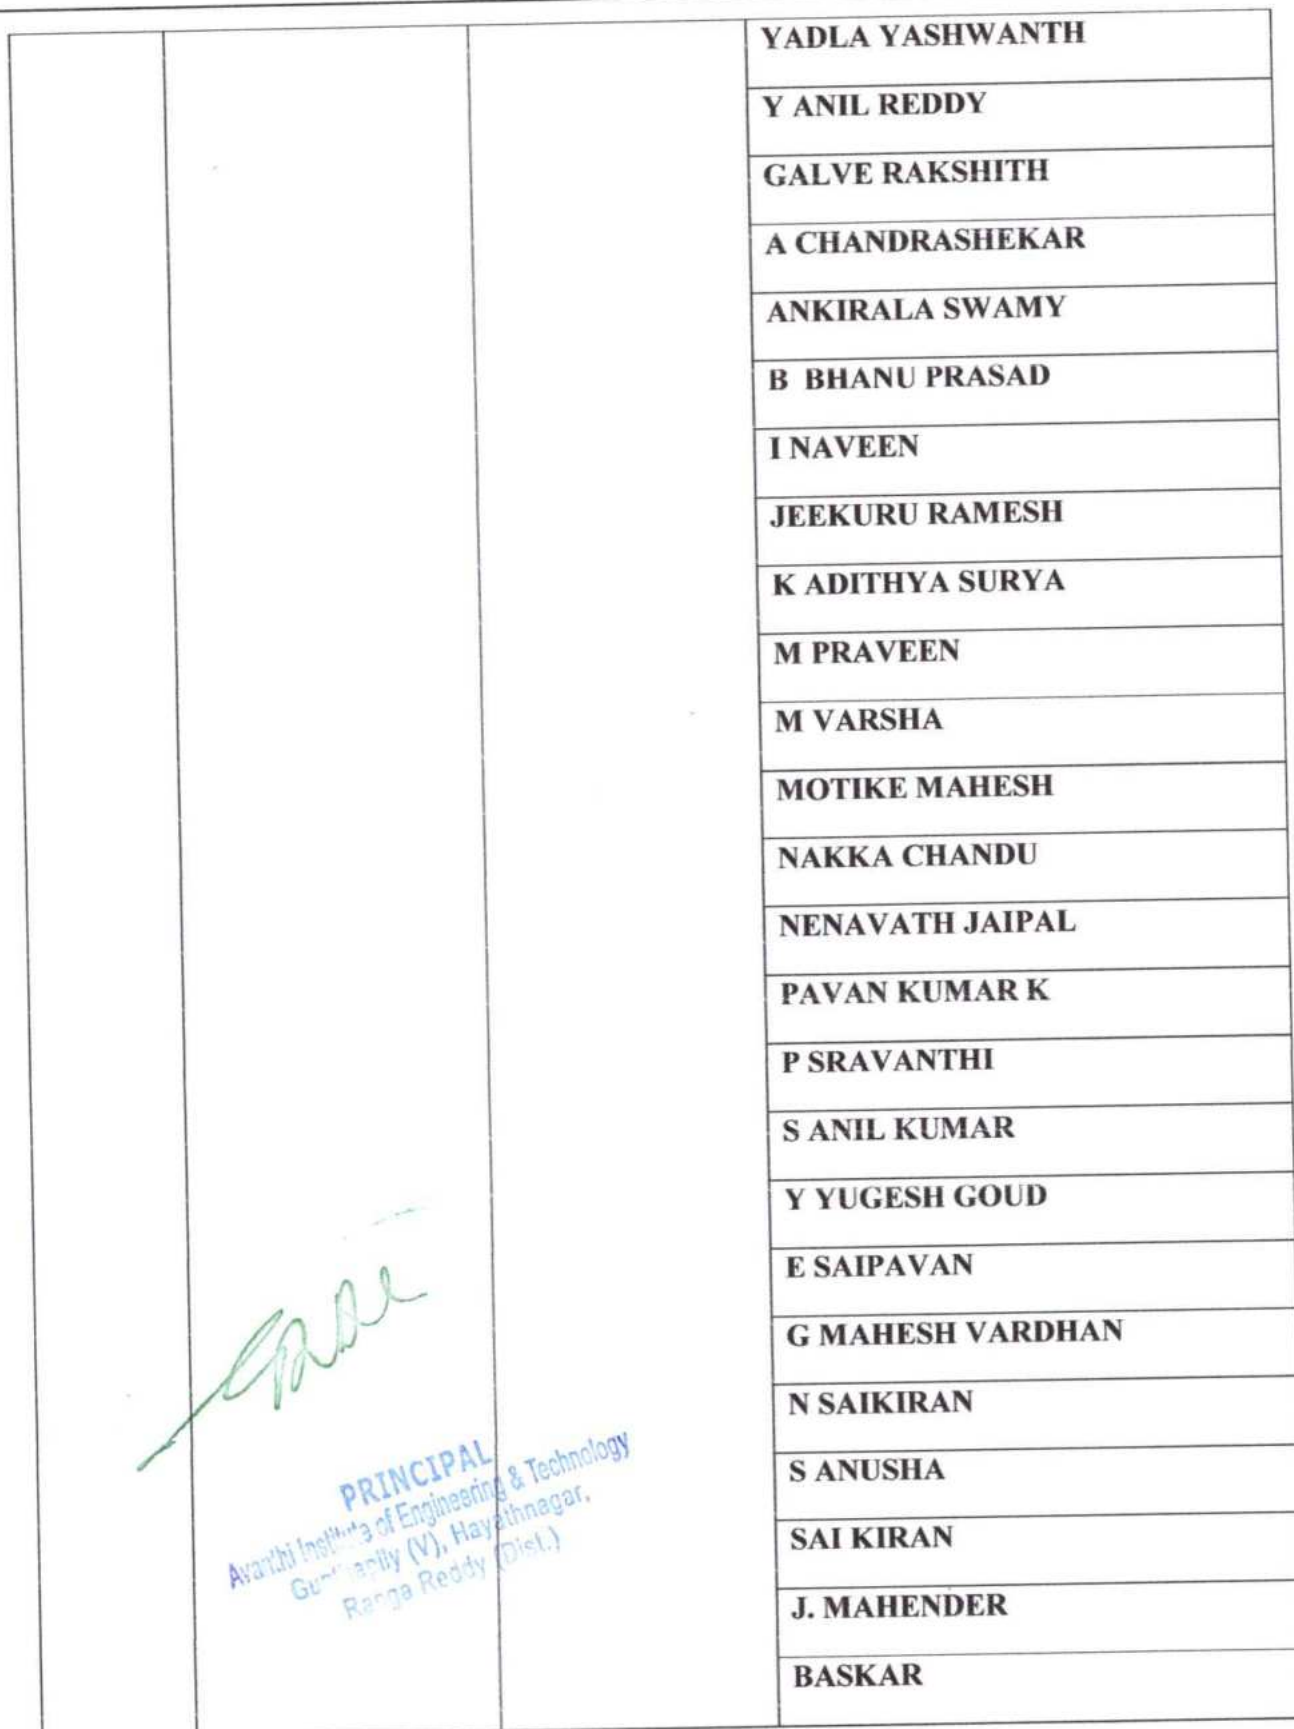 YADLA YASHWANTH
Y ANIL REDDY
GALVE RAKSHITH
A CHANDRASHEKAR
ANKIRALA SWAMY
B BHANU PRASAD
I NAVEEN
JEEKURU RAMESH
K ADITHYA SURYA
M PRAVEEN
M VARSHA
MOTIKE MAHESH
NAKKA CHANDU
NENAVATH JAIPAL
PAVAN KUMAR K
P SRAVANTHI
S ANIL KUMAR
Y YUGESH GOUD
E SAIPAVAN
G MAHESH VARDHAN
N SAIKIRAN
S ANUSHA
SAI KIRAN
J. MAHENDER
BASKAR
PRINCIPAL
Avanthi Institute of Engineering & Technology
(V), Hayathnagar,
Ranga Reddy (Dist.)